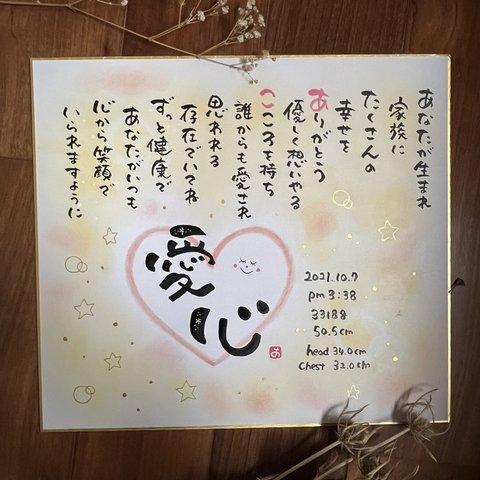 あなたが生まれ
家族に
たくさんの
幸せを
ありがとう
優しく想いやる
こころを持ち
誰からも愛され
思われる
存在でいてね
ずっと健康で
あなたがいつも
心から笑顔で
いられますように
愛心
2021.10.7
pm 3:38
3318g
50.5cm
head 34.0cm
chest 32.0cm